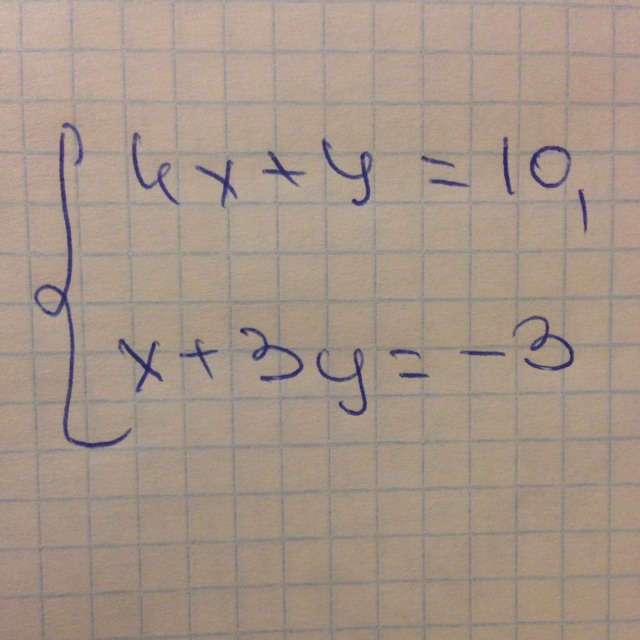 4x+y=10,
x+3y=-3